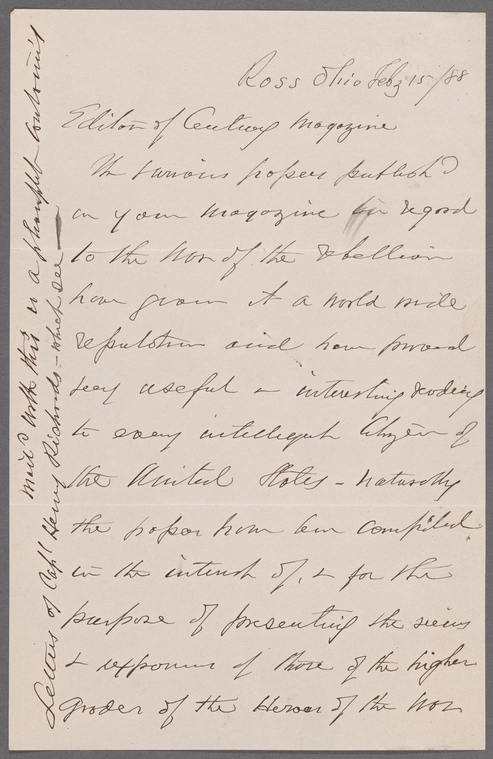 Ross Ohio Feby 15/88
Editor of Century Magazine
The various papers publishd
in your magazine in regard
to the War of the rebellion
have given it a world wide
reputation and have proved
very useful & interesting reading
to every intelligent Citizen of
the United States - naturally
the papers have been compiled
in the interest of, & for the
purpose of presenting the views
& exponents of those of the higher
grades of the Heroes of the War
Maild with this is a phamplet containing
Letters of Capt Henry Richards - which see